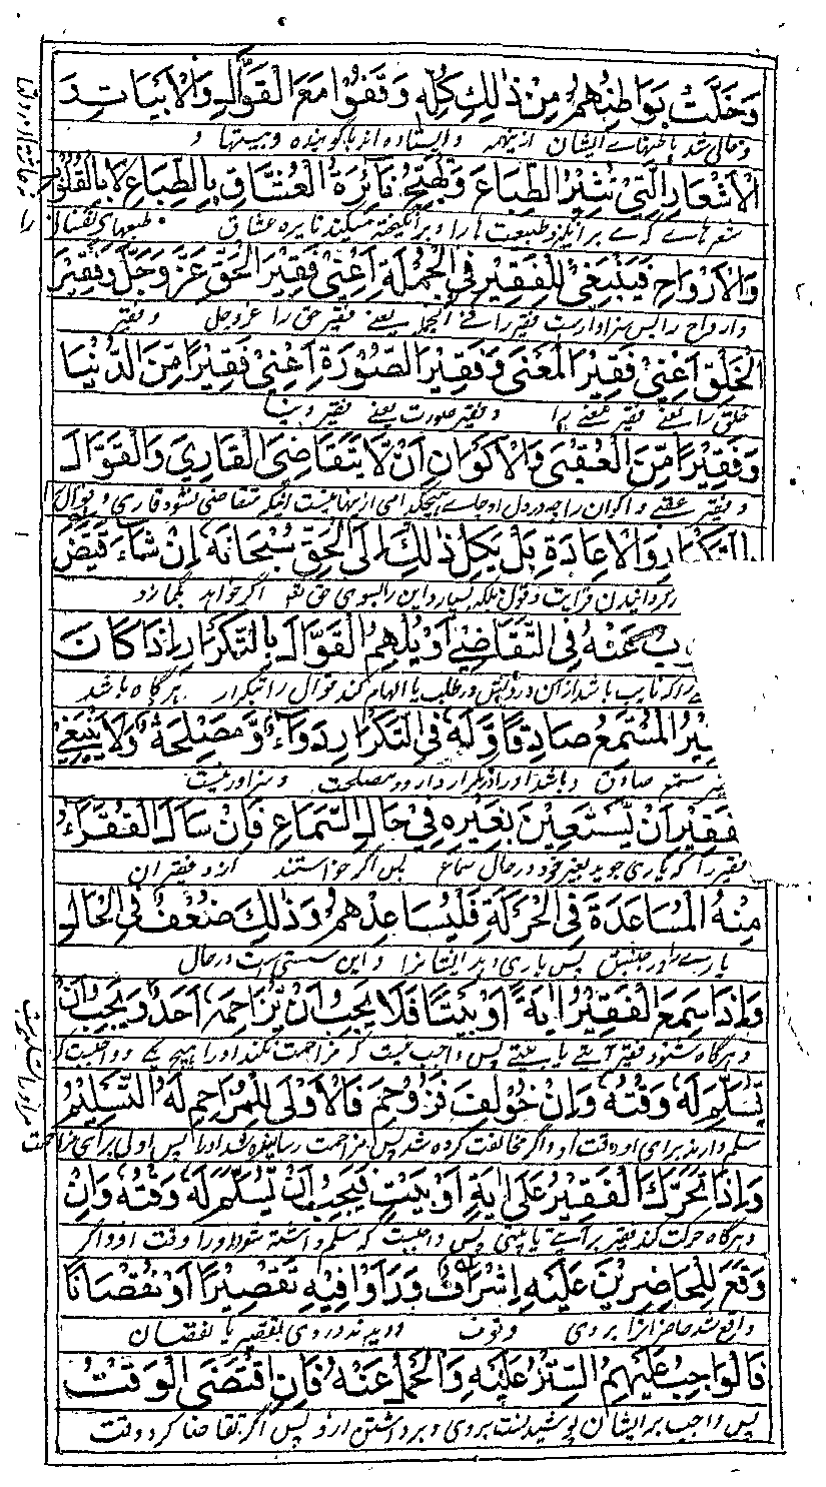 وَخَلَتْ بَوَاطِنُهُمْ مِنْ ذٰلِكَ كُلِّهِ وَقَفُوْا مَعَ الْقَوَّالِ وَالْاَبْيَاتِ وَ
و خالی شد باطنهاے ایشان ازینهمه و ایستاده اند با گوینده و بیتها و
الْاَشْعَارِ الَّتِيْ تُثِيْرُ الطِّبَاعَ وَتُهَيِّجُ نَائِرَةَ الْعُشَّاقِ بِالطِّبَاعِ لَا بِالْقُلُوْبِ
شعرهاے که مے برانگیزد طبیعت ها را و برانگیخته میکند نایره عشاق طبعهای نفسانی
وَالْاَرْوَاحِ فَيَنْبَغِيْ لِلْفَقِيْرِ فِي الْجُمْلَةِ اَعْنِيْ فَقِيْرَ الْحَقِّ عَزَّ وَجَلَّ وَفَقِيْرَ
و ارواح را پس سزاوارست فقیر را فی الجمله یعنے فقیر حق را عز و جل و فقیر
الْخَلْقِ اَعْنِيْ فَقِيْرَ الْمَعْنٰى وَفَقِيْرَ الصُّوْرَةِ اَعْنِيْ فَقِيْرًا مِّنَ الدُّنْيَا
خلق را یعنے فقیر معنے را و فقیر صورت یعنے فقیر دنیا
وَفَقِيْرًا مِّنَ الْعُقْبٰى وَالْاَكْوَانِ اَنْ لَّا يَتَقَاضَى الْقَارِيَ وَالْقَوَّالَ
و فقیر عقبے و اکوان را چه در دل او جاے هیچکدامی ازینها نیست اینکه متقاضی نشود قاری و قوال را
بِالتَّكْرَارِ وَالْاِعَادَةِ بَلْ يَكِلُ ذٰلِكَ اِلَى الْحَقِّ سُبْحَانَهُ اِنْ شَاءَ قَيَّضَ
گردانیدن قرایت و قول بلکه بسپارد این را بسوی حق تعه اگر خواهد بگمارد
عَنْهُ فِي التَّقَاضِيْ اَوْ يُلْهِمُ الْقَوَّالَ بِالتَّكْرَارِ اِذَا كَانَ
را که نایب باشد ازان درویش در طلب یا الهام کند قوال را تکرار هرگاه باشد
الْمُسْتَمِعُ صَادِقًا وَّلَهُ فِي التَّكْرَارِ دَوَاءٌ وَّمَصْلِحَةٌ وَلَا يَنْبَغِيْ
مستمع صادق و باشد او را در تکرار دارو و مصلحت و سزاوار نیست
اَنْ يَّسْتَعِيْنَ بِغَيْرِهِ فِيْ حَالِ السَّمَاعِ فَاِنْ سَاَلَ الْفُقَرَاءُ
فقیر را که یاری جوید بغیر خود در حال سماع پس اگر خواستند ازو فقیران
مِنْهُ الْمُسَاعَدَةَ فِي الْحَرَكَةِ فَلْيُسَاعِدْهُمْ وَذٰلِكَ ضُعْفٌ فِي الْحَالِ
یارے را در جنبش پس یاری دهد ایشان را و این سستی است در حال
وَاِذَا سَمِعَ الْفَقِيْرُ اٰيَةً اَوْ بَيْتًا فَلَا يَجِبُ اَنْ يُّزَاحِمَهُ اَحَدٌ وَيَجِبُ اَنْ
و هرگاه شنود فقیر آیتے یا بیتے پس واجب نیست که مزاحمت نکند او را هیچ یکے و واجبست که
يُسَلَّمَ لَهُ وَقْتُهُ وَاِنْ خُوْلِفَ فَزُوْحِمَ فَالْاَوْلٰى لِلْمُزَاحَمِ لَهُ التَّسْلِيْمُ
سلم دارند برای او وقت او و اگر مخالفت کرده شد پس مزاحمت رسانیده شد او را پس اولی برای
وَاِذَا تَحَرَّكَ الْفَقِيْرُ عَلٰى اٰيَةٍ اَوْ بَيْتٍ فَيَجِبُ اَنْ يُّسَلَّمَ لَهُ وَقْتُهُ وَاِنْ
و هرگاه حرکت کند فقیر بر آیتے یا بیتی پس واجبست که سلم داشته شود او را وقت او و اگر
وَقَعَ لِلْحَاضِرِيْنَ عَلَيْهِ اِشْرَافٌ وَرَاَوْا فِيْهِ تَقْصِيْرًا اَوْ نُقْصَانًا
واقع شد حاضران را بر وی وقوف و دیدند در وی تقصیر یا نقصان
فَالْوَاجِبُ عَلَيْهِمُ السَّتْرُ عَلَيْهِ وَالْحَمْلُ عَنْهُ فَاِنِ اقْتَضَى الْوَقْتُ
پس واجب بر ایشان پوشیدنست بر وی و برداشتن ازو پس اگر تقاضا کرد وقت